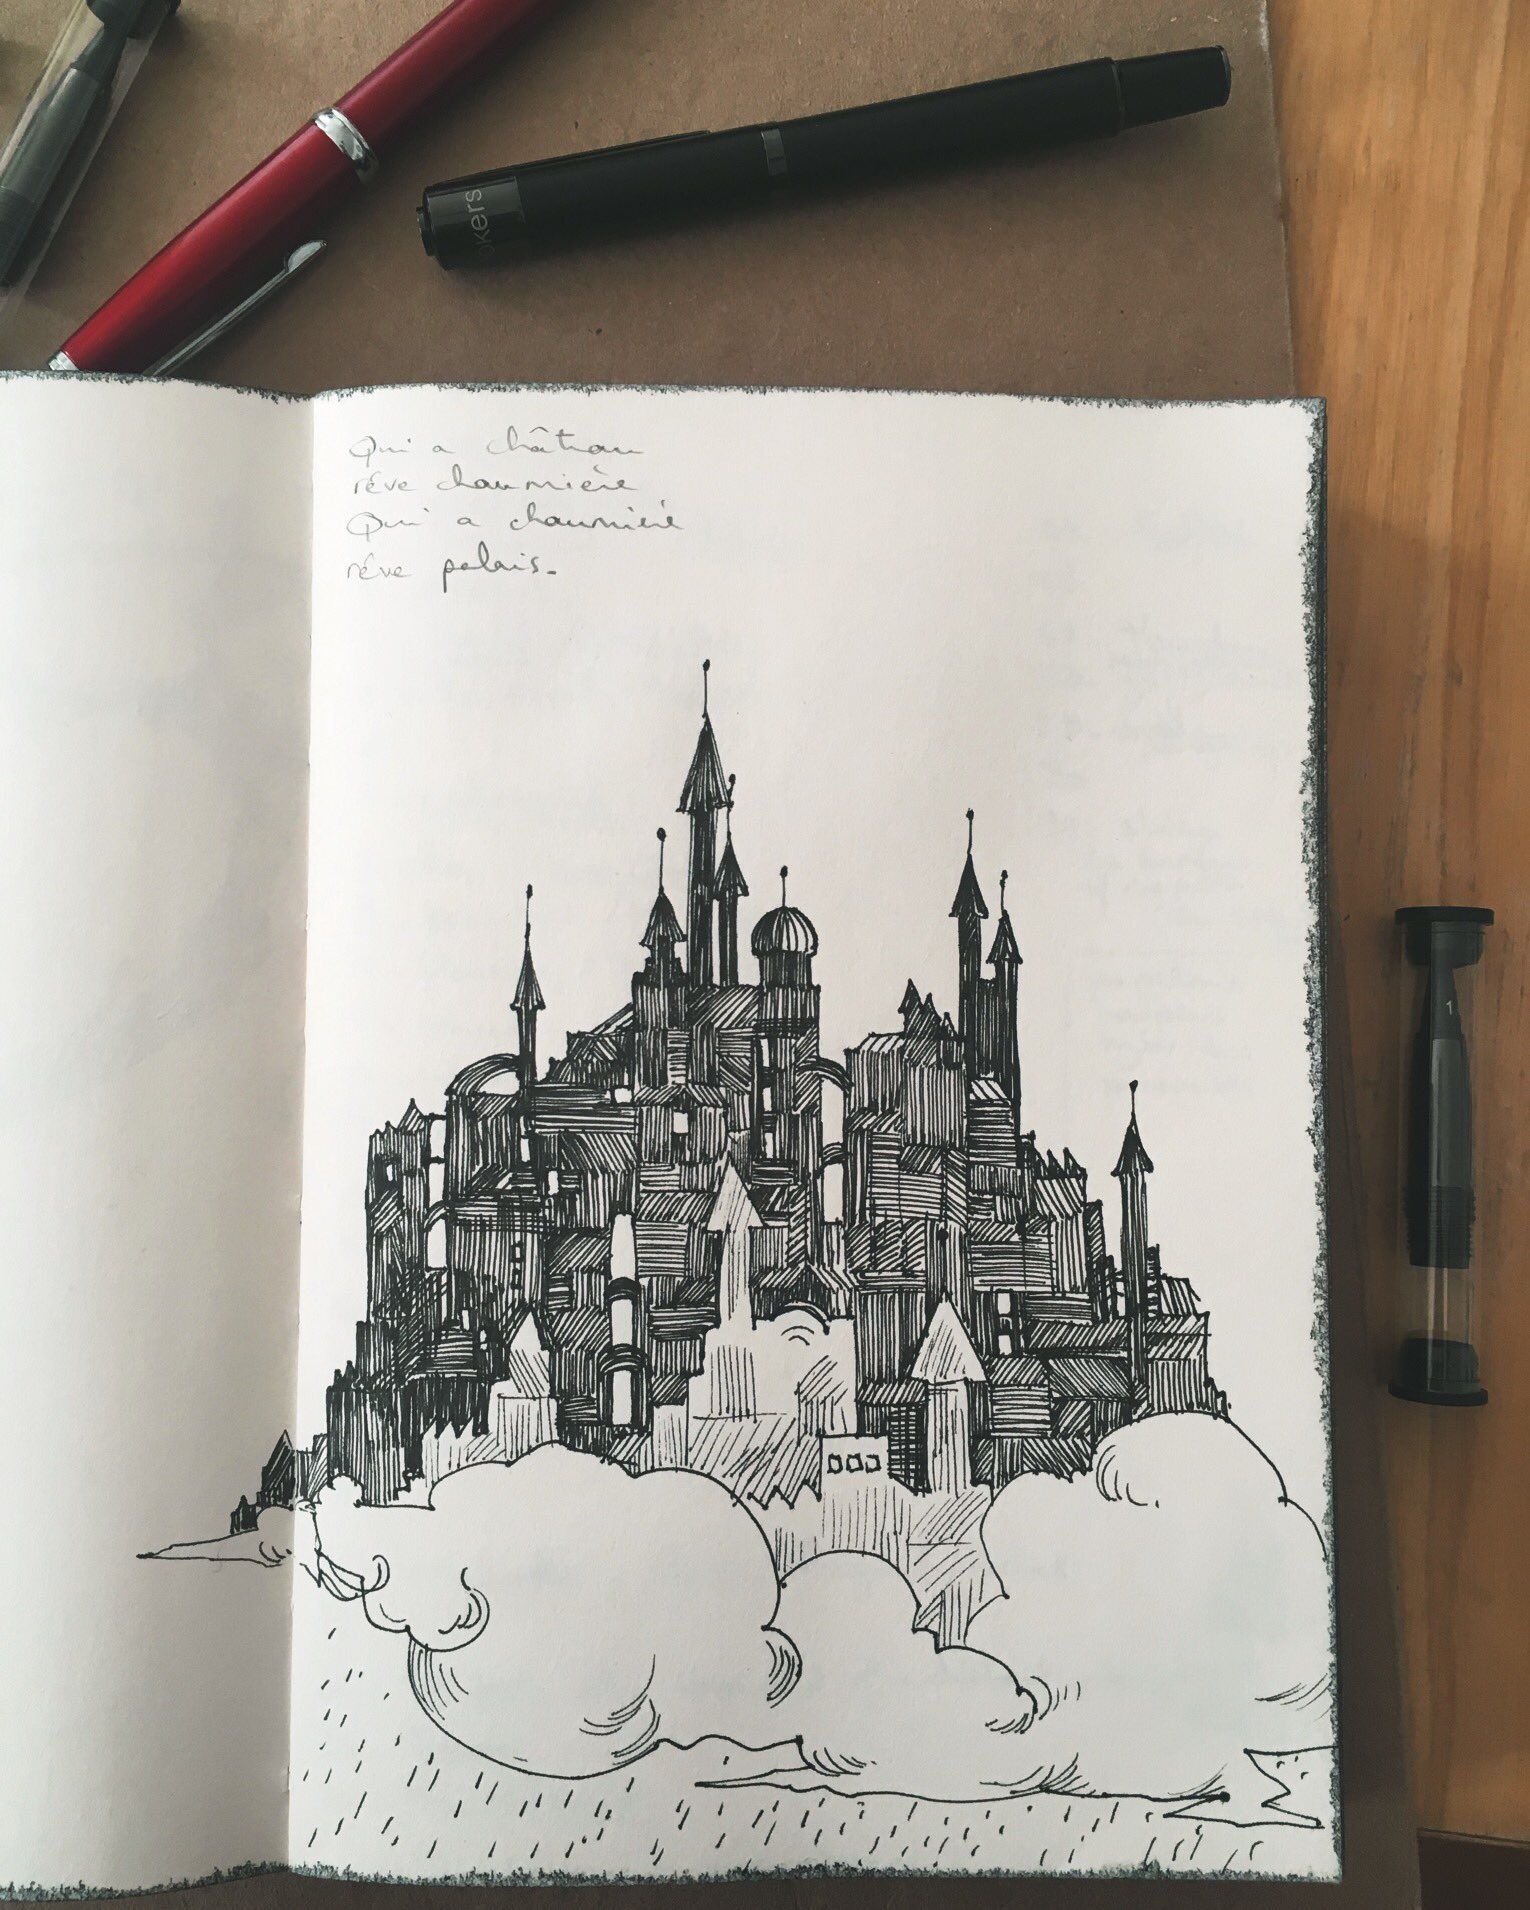 okers
Qui a château
rêve chaumière
Qui a chaumière
rêve palais.
1